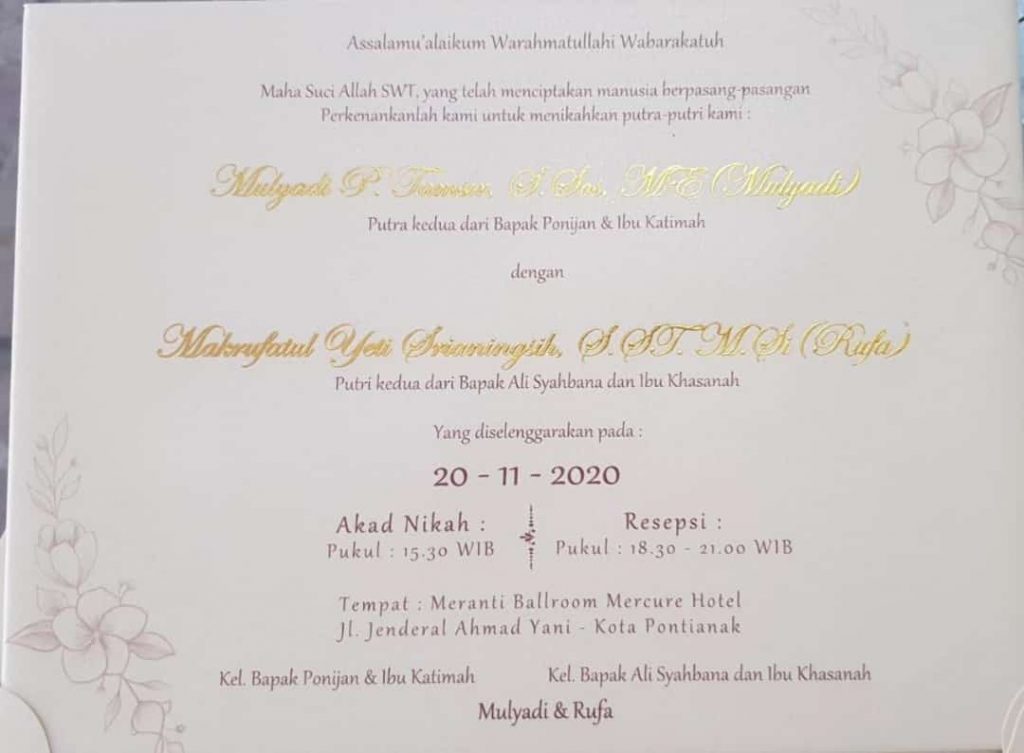 Assalamu'alaikum Warahmatullahi Wabarakatuh
Maha Suci Allah SWT, yang telah menciptakan manusia berpasang-pasangan
Perkenankanlah kami untuk menikahkan putra-putri kami :
Mulyadi P. Tamsir, S.Sos, M.E (Mulyadi)
Putra kedua dari Bapak Ponijan & Ibu Katimah
dengan
Makrufatul Yeti Srianingsih, S.ST. M.Si (Rufa)
Putri kedua dari Bapak Ali Syahbana dan Ibu Khasanah
Yang diselenggarakan pada :
20 - 11 - 2020
Akad Nikah :
Pukul : 15.30 WIB
Resepsi :
Pukul : 18.30 - 21.00 WIB
Tempat : Meranti Ballroom Mercure Hotel
Jl. Jenderal Ahmad Yani - Kota Pontianak
Kel. Bapak Ponijan & Ibu Katimah
Kel. Bapak Ali Syahbana dan Ibu Khasanah
Mulyadi & Rufa